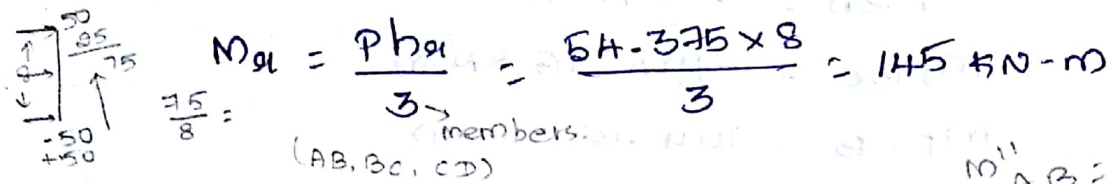 50
25
75
8
-50
+50
75/8 =
Mr = Phr/3 = 54.375 × 8/3 = 145 kN-m
members.
(AB, BC, CD)
M''AB =